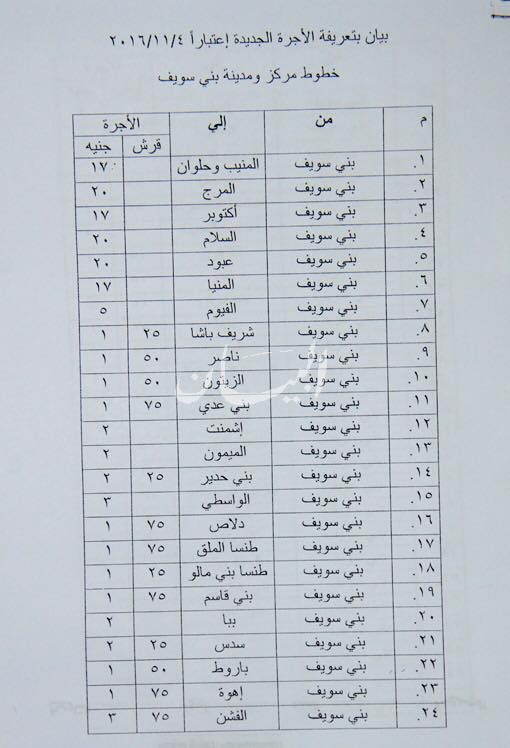 بيان بتعريفة الأجرة الجديدة إعتباراً ٢٠١٦/١١/٤
خطوط مركز ومدينة بني سويف
م من إلي الأجرة
قرش جنيه
١. بني سويف المنيب وحلوان ١٧
٢. بني سويف المرج ٢٠
٣. بني سويف أكتوبر ١٧
٤. بني سويف السلام ٢٠
٥. بني سويف عبود ٢٠
٦. بني سويف المنيا ١٧
٧. بني سويف الفيوم ٥
٨. بني سويف شريف باشا ٢٥ ١
٩. بني سويف ناصر ٥٠ ١
١٠. بني سويف الزيتون ٥٠ ١
١١. بني سويف بني عدي ٧٥ ١
١٢. بني سويف إشمنت ٢
١٣. بني سويف الميمون ٢
١٤. بني سويف بني حدير ٢٥ ٢
١٥. بني سويف الواسطي ٣
١٦. بني سويف دلاص ٧٥ ١
١٧. بني سويف طنسا الملق ٧٥ ١
١٨. بني سويف طنسا بني مالو ٢٥ ١
١٩. بني سويف بني قاسم ٧٥ ١
٢٠. بني سويف ببا ٢
٢١. بني سويف سدس ٢٥ ٢
٢٢. بني سويف باروط ٥٠ ١
٢٣. بني سويف إهوة ٧٥ ١
٢٤. بني سويف الفشن ٧٥ ٣
البيان